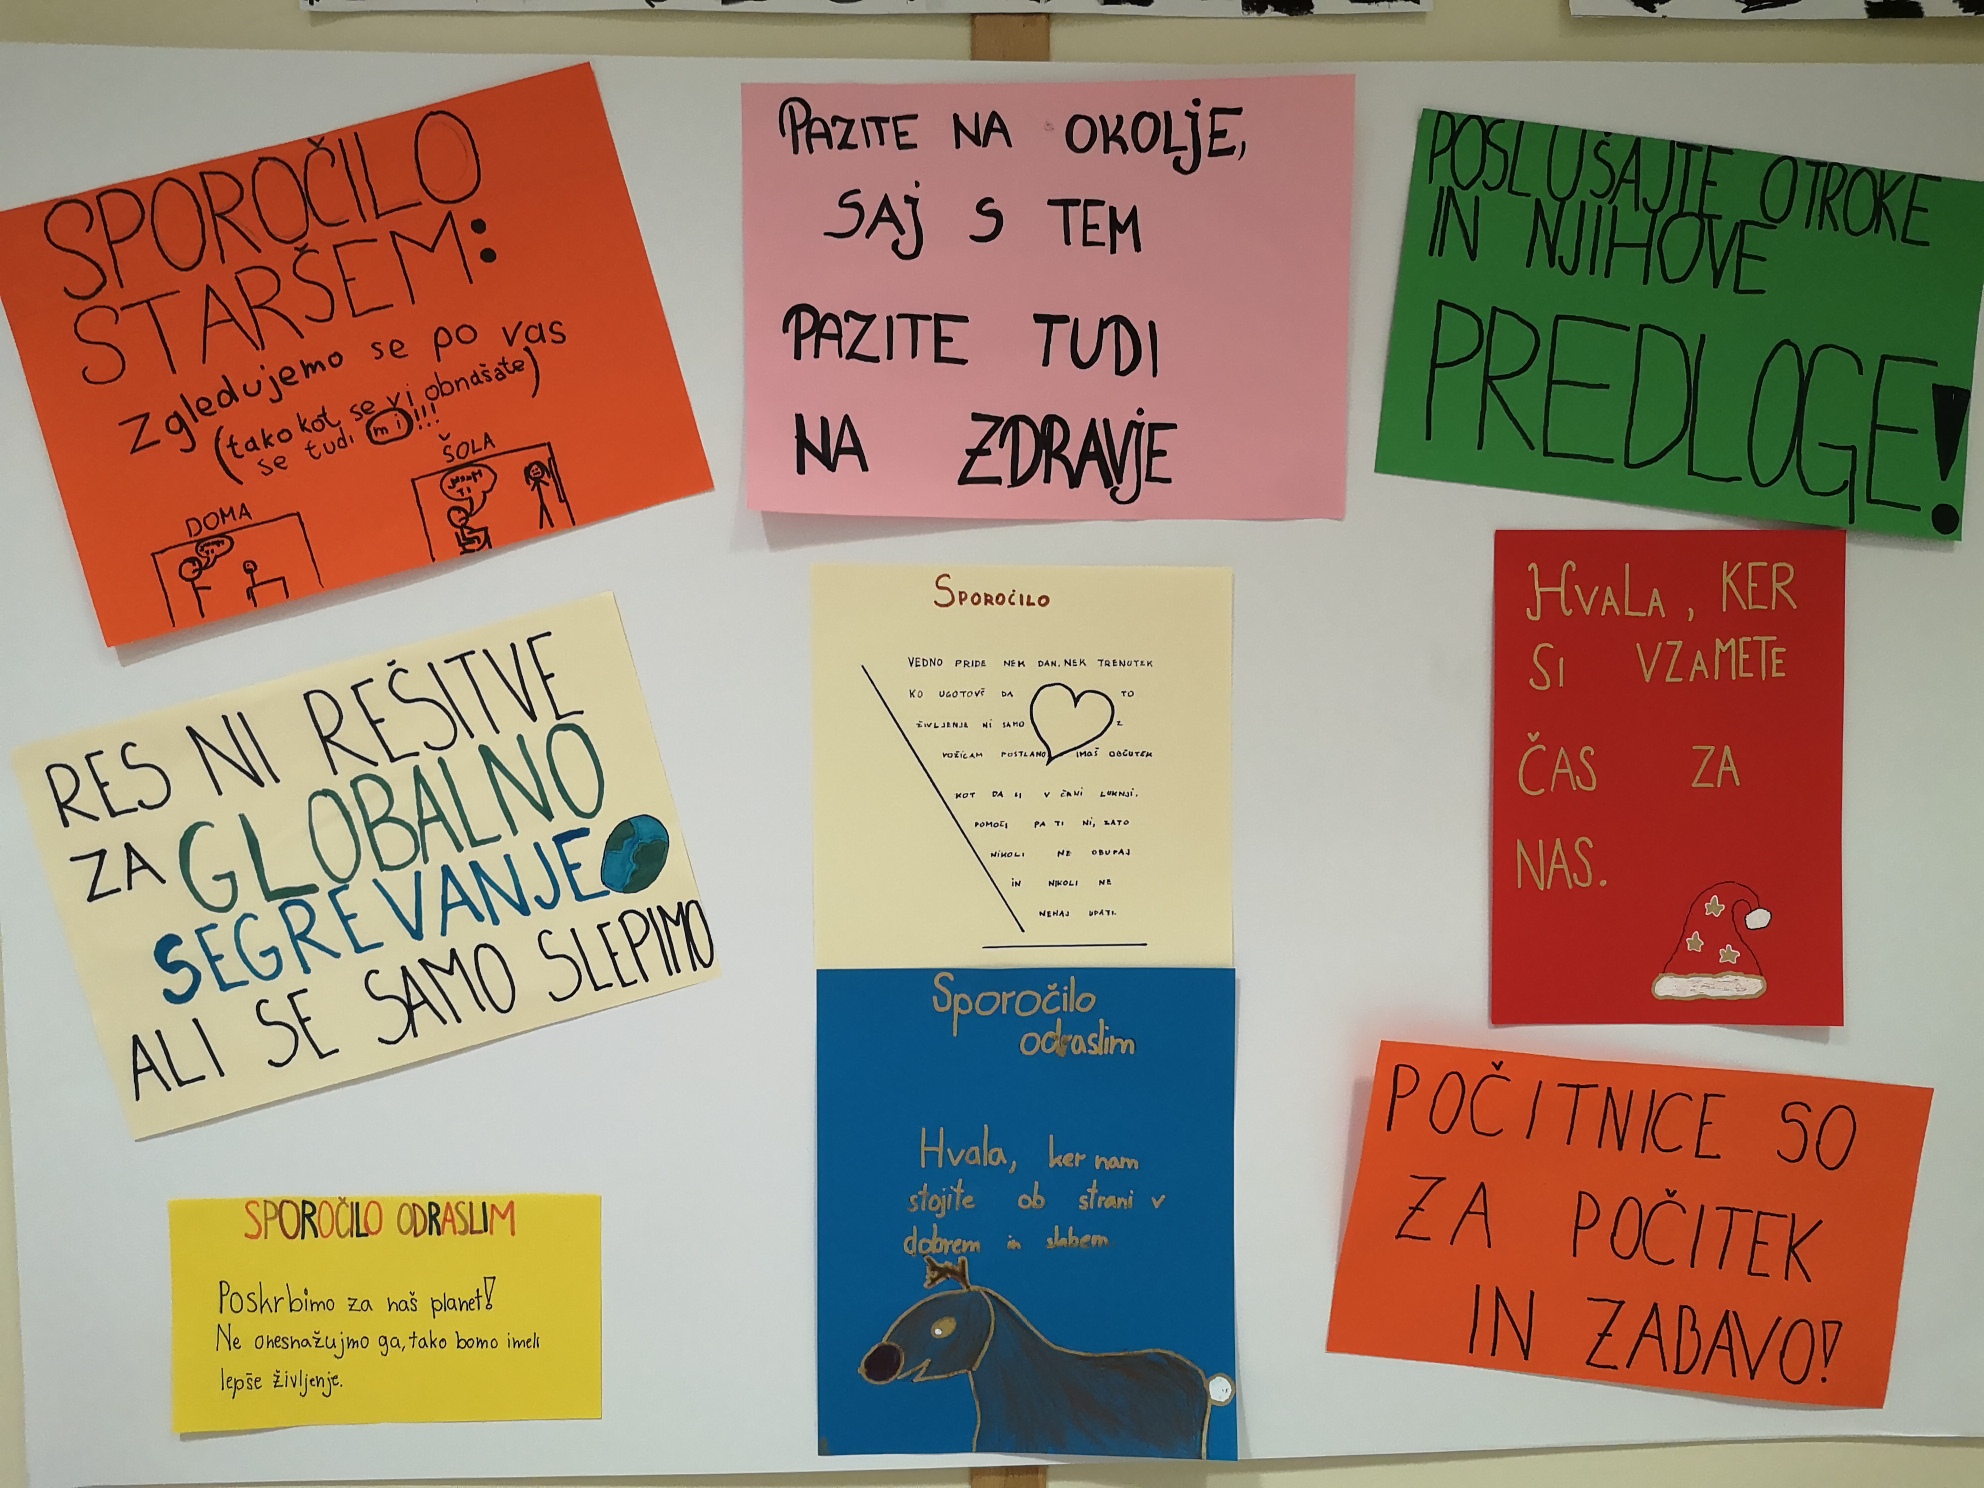 SPOROČILO
STARŠEM:
Zgledujemo se po vas
(tako kot se vi obnašate)
se tudi mi!!!
DOMA
ŠOLA
PAZITE NA OKOLJE,
SAJ S TEM
PAZITE TUDI
NA ZDRAVJE
POSLUŠAJTE OTROKE
IN NJIHOVE
PREDLOGE!
RES NI REŠITVE
ZA GLOBALNO
SEGREVANJE
ALI SE SAMO SLEPIMO
SPOROČILO
VEDNO PRIDE NEK DAN, NEK TRENUTEK
KO UGOTOVŠ DA TO
ŽIVLJENJE NI SAMO Z
POSTLANO IMAŠ OBČUTEK
KOT DA SI V ČRNI LUKNJI.
POMOČI PA TI NI, ZATO
NIKOLI NE OBUPAJ
IN NIKOLI NE
NEHAJ UPATI.
HVALA, KER
SI VZAMETE
ČAS ZA
NAS.
SPOROČILO ODRASLIM
Poskrbimo za naš planet!
Ne onesnažujmo ga, tako bomo imeli
lepše življenje.
Sporočilo
odraslim
Hvala, ker nam
stojite ob strani v
dobrem in slabem
POČITNICE SO
ZA POČITEK
IN ZABAVO!